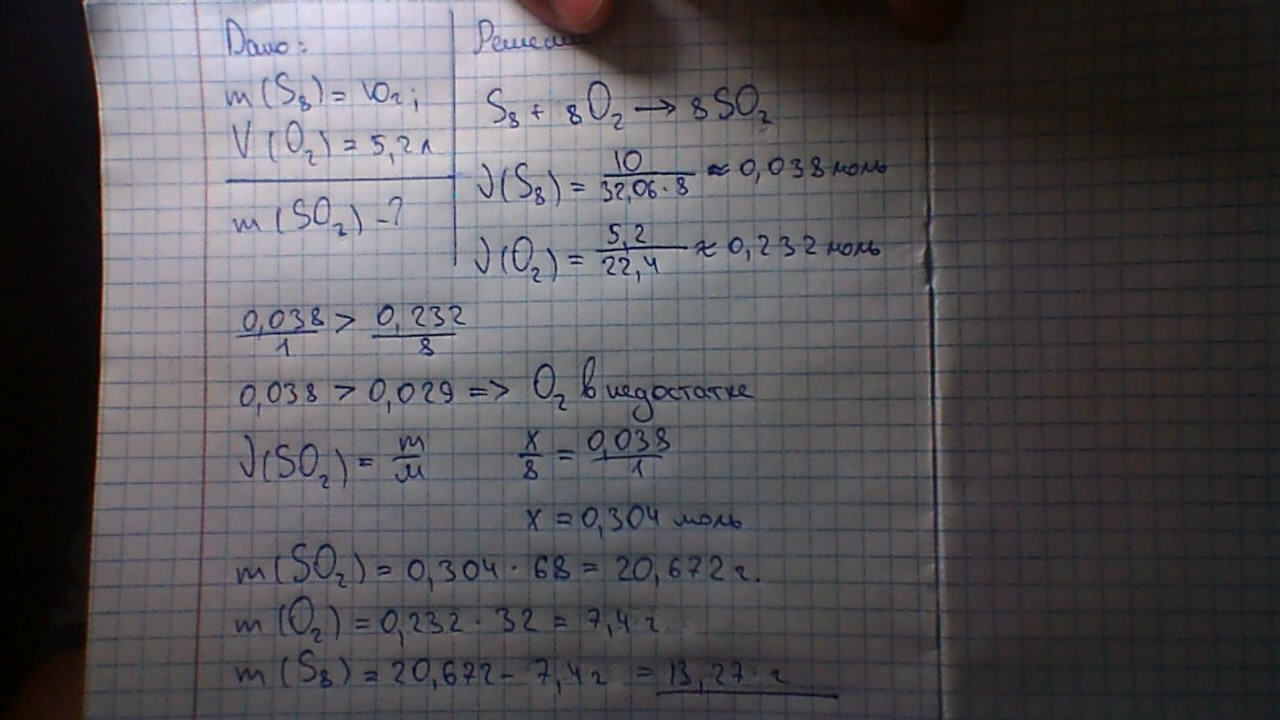 Дано:
m(S₈) = 10г;
V(O₂) = 5,2л
m(SO₂) -?
Решение:
S₈ + 8O₂ → 8SO₂
ν(S₈) = 10/32,06·8 ≈ 0,038 моль
ν(O₂) = 5,2/22,4 ≈ 0,232 моль
0,038/1 > 0,232/8
0,038 > 0,029 => O₂ в недостатке
ν(SO₂) = m/M x/8 = 0,038/1
x = 0,304 моль
m(SO₂) = 0,304 · 68 = 20,672 г.
m(O₂) = 0,232 · 32 = 7,4 г.
m(S₈) = 20,672 - 7,4 г = 13,27 г